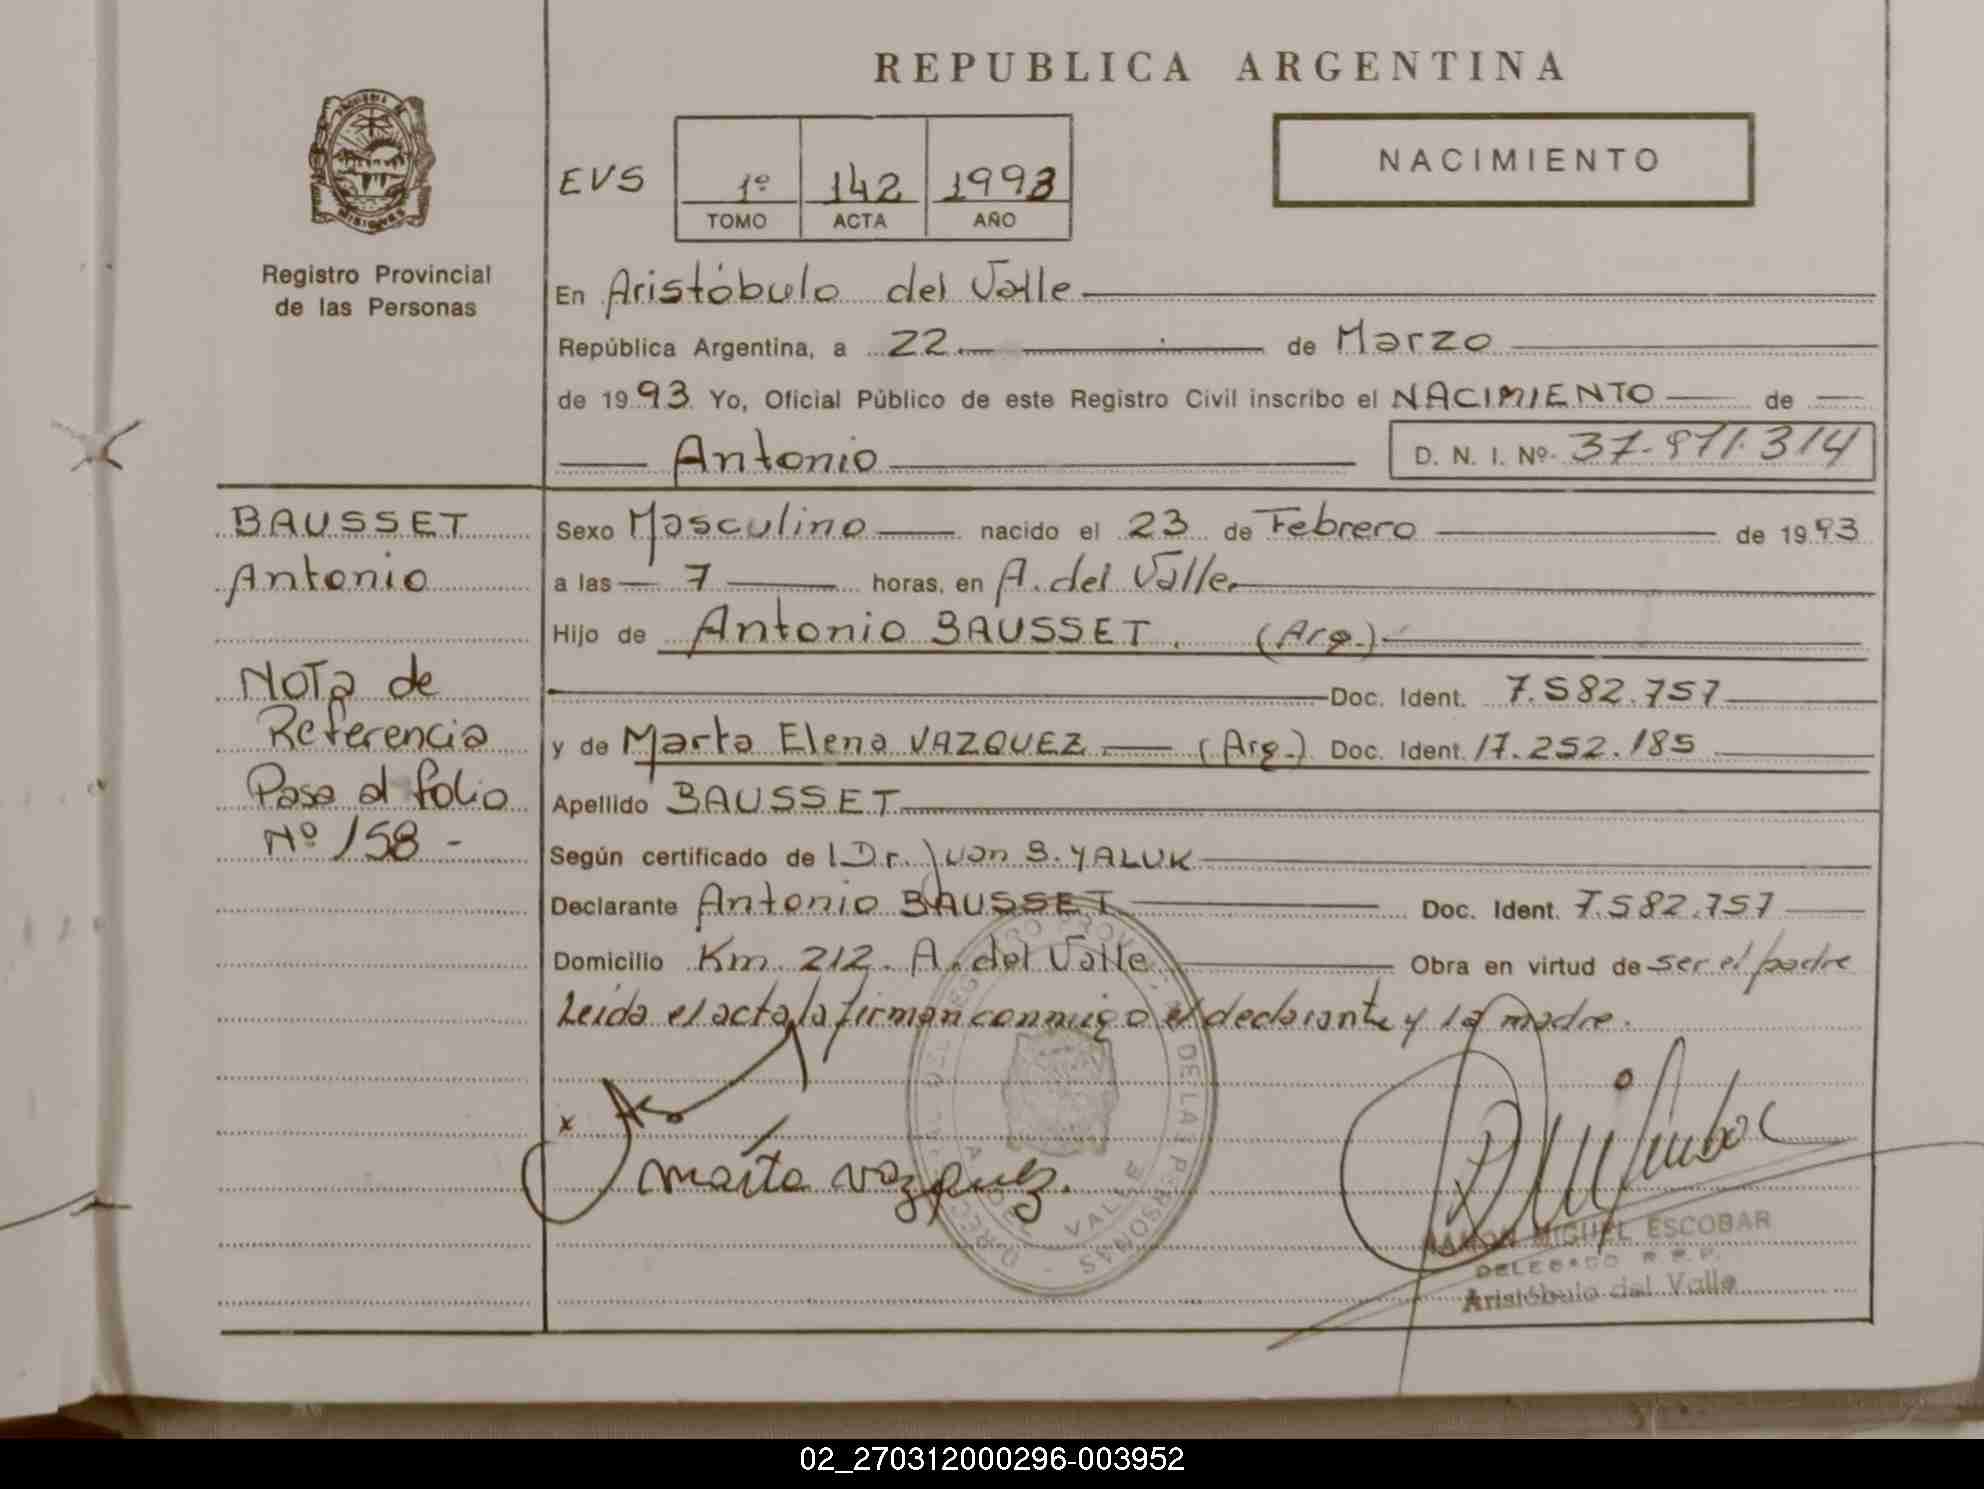 REPUBLICA ARGENTINA
NACIMIENTO
EVS
1º 142 1993
TOMO ACTA AÑO
MISIONES
Registro Provincial
de las Personas
En Aristóbulo del Valle
República Argentina, a 22 de Marzo
de 1993 Yo, Oficial Público de este Registro Civil inscribo el NACIMIENTO de
Antonio D. N. I. Nº 37.971.314
BAUSSET
Antonio
NOTA de
Referencia
Pasa al folio
Nº 158 -
Sexo Masculino nacido el 23 de Febrero de 1993
a las 7 horas, en A. del Valle
Hijo de Antonio BAUSSET. (Arg.)
Doc. Ident. 7.582.757
y de Marta Elena VAZQUEZ (Arg.) Doc. Ident. 17.252.185
Apellido BAUSSET
Según certificado de Dr. Juan S. YALUK
Declarante Antonio BAUSSET Doc. Ident. 7.582.757
Domicilio Km. 212. A. del Valle Obra en virtud de ser el padre
Leída el acta la firman conmigo el declarante y la madre.
x
marta vazquez.
RAMON MIGUEL ESCOBAR
DELEGADO R.P.P.
Aristóbulo del Valle
02_270312000296-003952